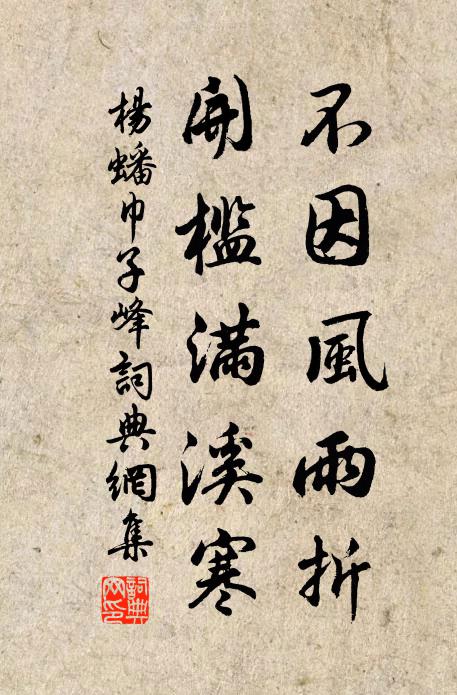 不因風雨折
開檻滿溪寒
楊蟠巾子峰詞典網集
詞典网印